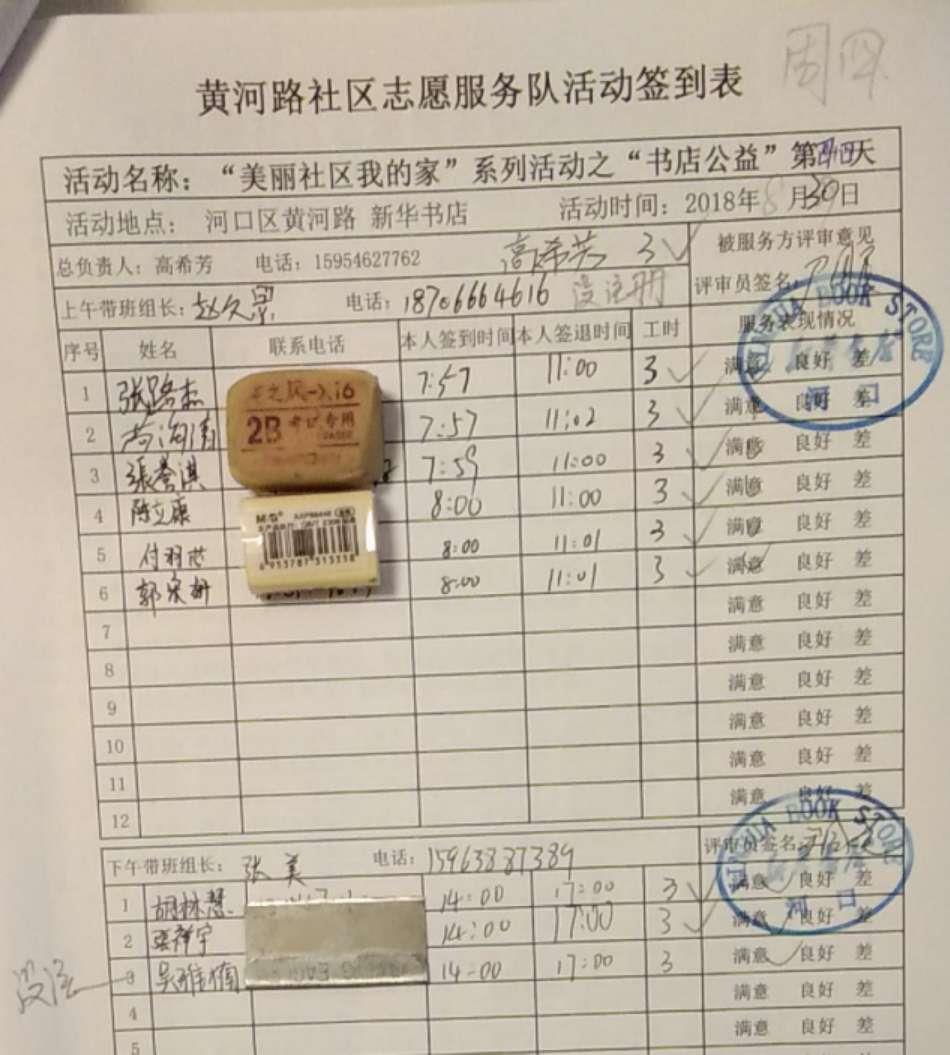 周四
黄河路社区志愿服务队活动签到表
活动名称：“美丽社区我的家”系列活动之“书店公益”第四天
活动地点： 河口区黄河路 新华书店 活动时间：2018年8月30日
总负责人：高希芳 电话：15954627762 高希芳 3 被服务方评审意见
上午带班组长： 电话：18706664616 没注册 评审员签名：
序号 姓名 联系电话 本人签到时间 本人签退时间 工时 服务表现情况
1 张路杰 7:57 11:00 3 满意 良好 差
2 7:57 11:02 3 满意 良好 差
3 張誉淇 7:59 11:00 3 满意 良好 差
4 陈立康 8:00 11:00 3 满意 良好 差
5 付羽芯 8:00 11:01 3 满意 良好 差
6 郭 8:00 11:01 3 满意 良好 差
7 满意 良好 差
8 满意 良好 差
9 满意 良好 差
10 满意 良好 差
11 满意 良好 差
12 满意 良好 差
2B 考试专用
M&G
6 953787 315358
XINHUA BOOK STORE
河口
下午带班组长： 张美 电话：15963887389 评审员签名
1 胡林慧 14:00 17:00 3 满意 良好 差
2 14:00 17:00 3 满意 良好 差
3 吴雅楠 14:00 17:00 3 满意 良好 差
4 满意 良好 差
5 满意 良好 差
XINHUA BOOK STORE
河口
没注